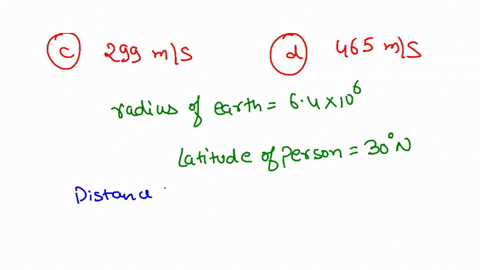 c 299 m/s d 465 m/s
radius of earth = 6.4×10⁶
Latitude of person = 30°N
Distance